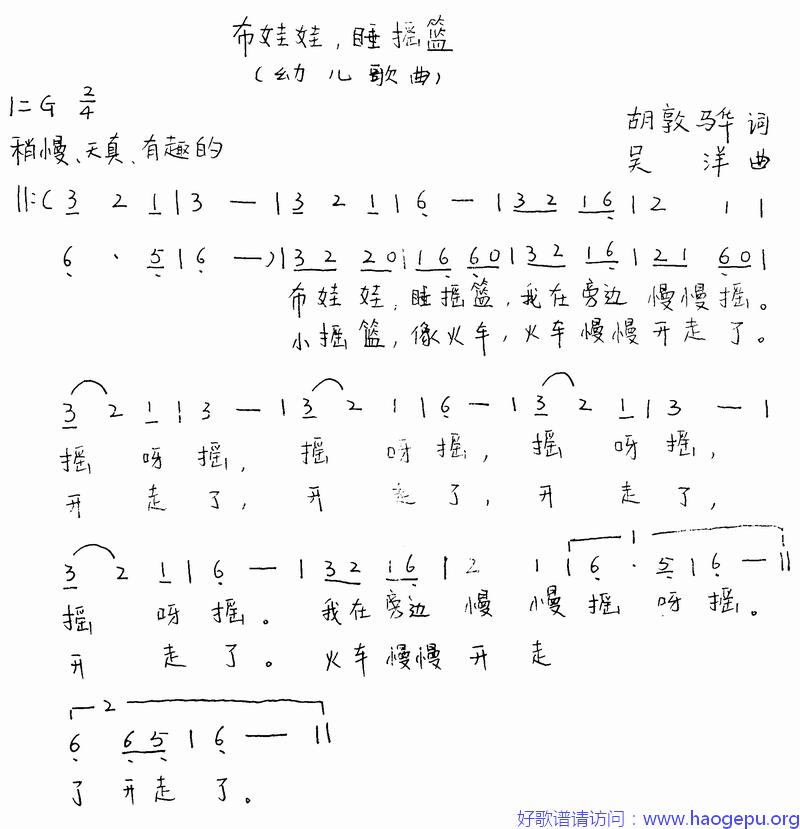 布娃娃,睡摇篮
(幼儿歌曲)
1=G 2/4
胡敦骅 词
稍慢、天真、有趣的
吴 洋 曲
||:( 3 2 1 | 3 — | 3 2 1 | 6 — | 3 2 1 6 | 2 1 |
6 · 5 | 6 — ) | 3 2 2 0 | 1 6 6 0 | 3 2 1 6 | 2 1 6 0 |
布娃娃,睡摇篮,我在旁边 慢慢摇。
小摇篮,像火车,火车慢慢开走了。
3 2 1 | 3 — | 3 2 1 | 6 — | 3 2 1 | 3 — |
摇 呀摇, 摇 呀摇, 摇 呀摇,
开 走了, 开 走了, 开 走了,
3 2 1 | 6 — | 3 2 1 6 | 2 1 | 1 6 · 5 | 6 — ||
摇 呀摇。 我在旁边 慢 慢摇 呀摇。
开 走了。 火车慢慢开 走
2
6 6 5 | 6 — ||
了 开走了。
好歌谱请访问:www.haogepu.org